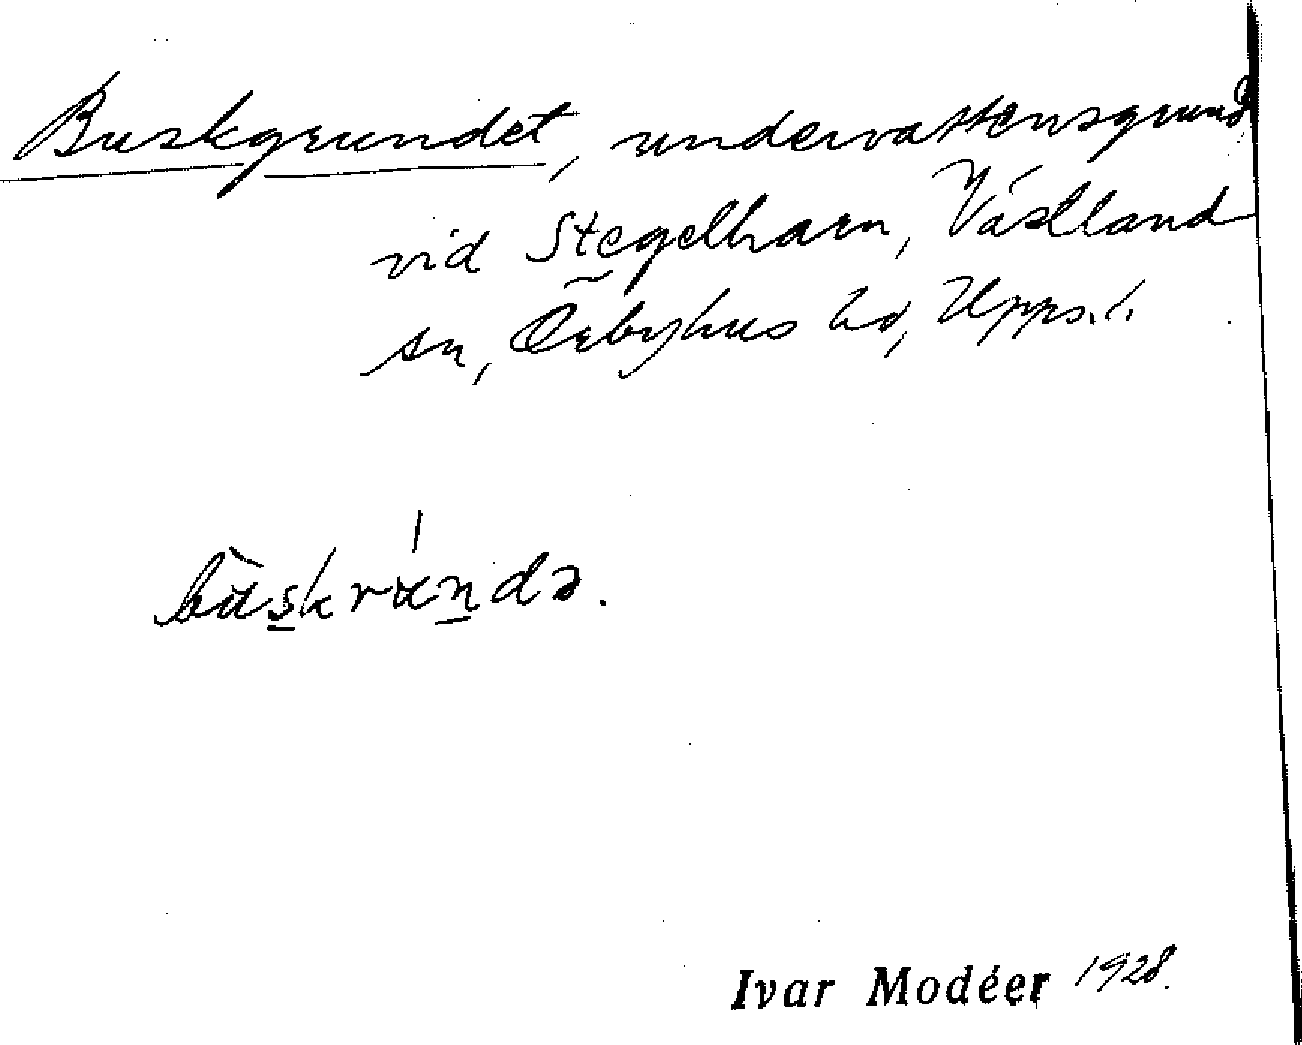 Buskgrundet, undervattensgrund
vid Stegelhamn, Västland
sn, Örbyhus hd, Upps. l.
bùskrúndə.
Ivar Modéer 1928.